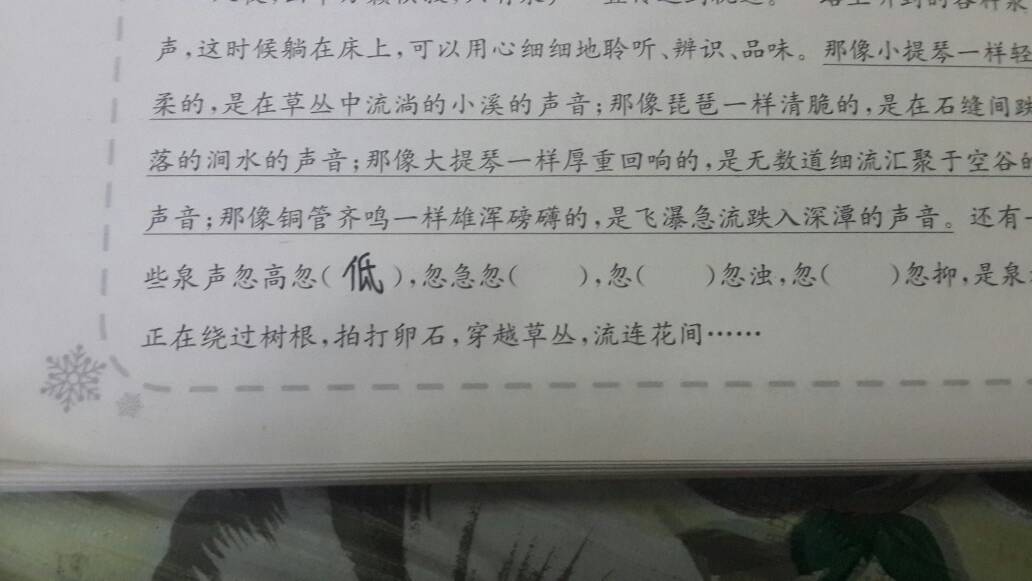 声,这时候躺在床上,可以用心细细地聆听、辨识、品味。那像小提琴一样轻
柔的,是在草丛中流淌的小溪的声音;那像琵琶一样清脆的,是在石缝间跌
落的涧水的声音;那像大提琴一样厚重回响的,是无数道细流汇聚于空谷的
声音;那像铜管齐鸣一样雄浑磅礴的,是飞瀑急流跌入深潭的声音。还有一
些泉声忽高忽(低),忽急忽(  ),忽(  )忽浊,忽(  )忽抑,是泉
正在绕过树根,拍打卵石,穿越草丛,流连花间……